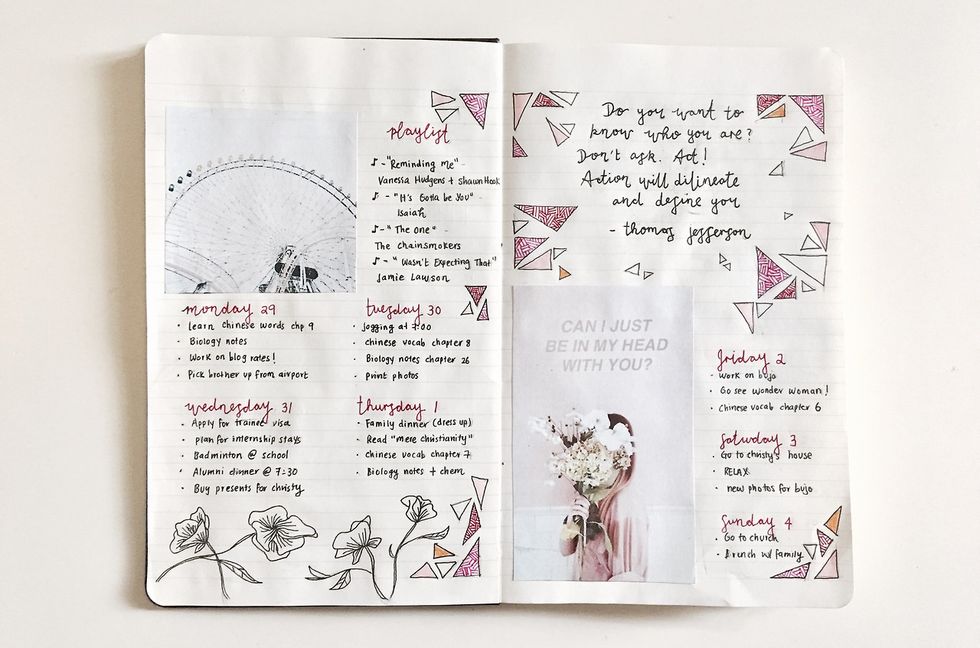 playlist
♪ - "Reminding Me" -
Vanessa Hudgens + Shawn Hook
♪ - "It's Gotta be You" -
Isaiah
♪ - "The One" -
The Chainsmokers
♪ - "Wasn't Expecting That"
Jamie Lawson
monday 29
· Learn Chinese words chp 9
· Biology notes
· Work on blog rates!
· Pick brother up from airport
tuesday 30
· jogging at 7:00
· Chinese vocab chapter 8
· Biology notes chapter 26
· print photos
wednesday 31
· Apply for trainee visa
· plan for internship stays
· Badminton @ school
· Alumni dinner @ 7:30
· Buy presents for christy
thursday 1
· Family dinner (dress up)
· Read "mere christianity"
· chinese vocab chapter 7
· Biology notes + chem
Do you want to
know who you are?
Don't ask. Act!
Action will dilineate
and define you
- thomas jefferson
CAN I JUST
BE IN MY HEAD
WITH YOU?
friday 2
· Work on bujo
· Go see wonder woman!
· Chinese vocab chapter 6
saturday 3
· Go to christy's house
· RELAX
· new photos for bujo
sunday 4
· Go to church
· Brunch w/ family